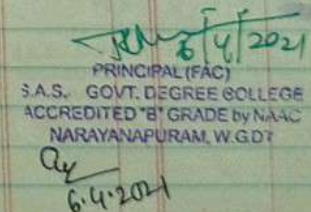 6/4/2021
PRINCIPAL (FAC)
S.A.S. GOVT. DEGREE COLLEGE
ACCREDITED "B" GRADE by NAAC
NARAYANAPURAM, W.G.DT
6.4.2021